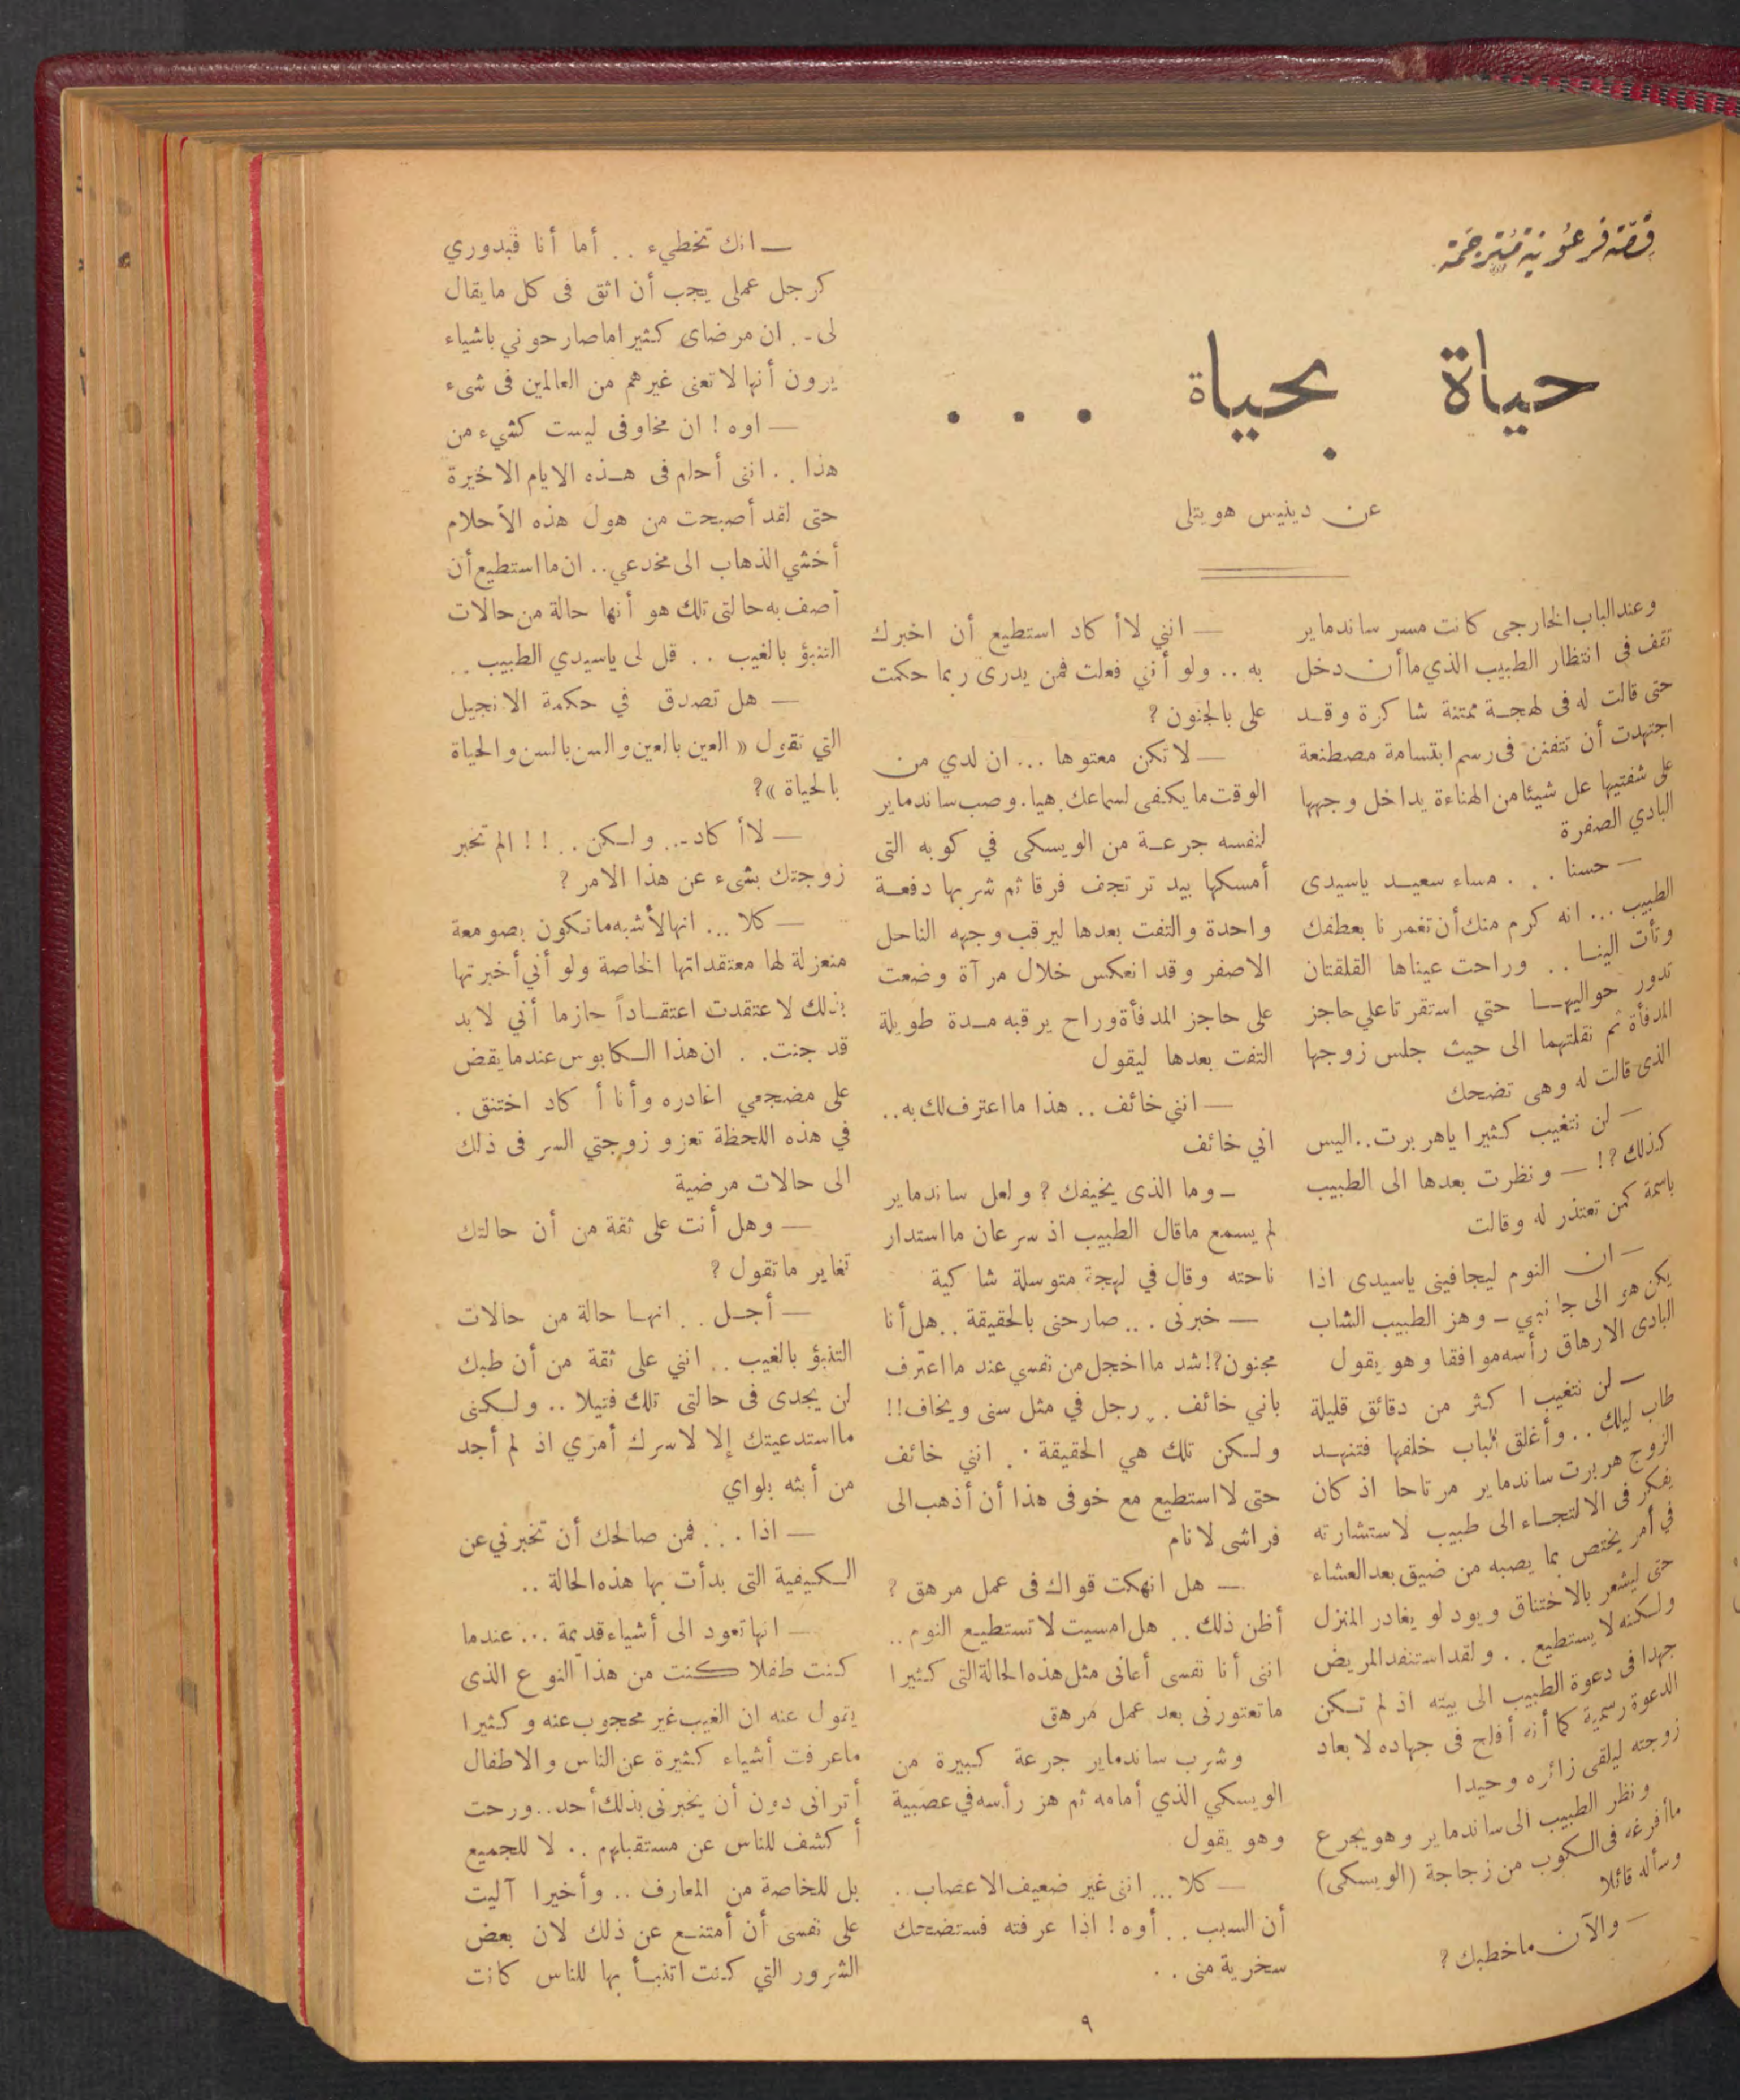 قصة فرعونية مترجمة
حياة بحياة . . .
عن دينيس هويتلى
وعند الباب الخارجى كانت مسر ساندماير
تقف فى انتظار الطبيب الذي ما أن دخل
حتى قالت له فى لهجـة ممتنة شاكرة وقـد
اجتهدت أن تتفنن فى رسم ابتسامة مصطنعة
على شفتيها عل شيئا من الهناءة يداخل وجهها
البادي الصفرة
— حسنا . . . مساء سعيـد ياسيدى
الطبيب ... انه كرم منك أن تغمرنا بعطفك
وتأت الينـا .. وراحت عيناها القلقتان
تدور حواليهـا حتي استقرتا على حاجز
المدفأة ثم نقلتهما الى حيث جلس زوجها
الذى قالت له وهى تضحك
— لن نتغيب كثيرا ياهربرت..اليس
كذلك ?! — ونظرت بعدها الى الطبيب
باسمة كمن تعتذر له وقالت
— ان النوم ليجافينى ياسيدى اذا
يكن هو الى جانبي - وهز الطبيب الشاب
البادى الارهاق رأسه موافقا وهو يقول
— لن نتغيب اكثر من دقائق قليلة
طاب ليلك .. وأغلق الباب خلفها فتنهـد
الزوج هربرت ساندماير مرتاحا اذ كان
يفكر فى الالتجـاء الى طبيب لاستشارته
في أمر يختص بما يصبه من ضيق بعد العشاء
حتى ليشعر بالاختناق ويود لو يغادر المنزل
ولـكنه لا يستطيع .. ولقد استنفد المريض
جهدا فى دعوة الطبيب الى بيته اذ لم تـكن
الدعوة رسمية كما أنه أفلح فى جهاده لابعاد
زوجته ليلقى زائره وحيدا
ونظر الطبيب الى ساندماير وهو يجرع
ما أفرغه فى الـكوب من زجاجة (الويسكى)
وسأله قائلا
— والآن ماخطبك ?
— انني لا أكاد استطيع أن اخبرك
به .. ولو أنني فعلت فمن يدرى ربما حكمت
على بالجنون ?
— لا تكن معتوها ... ان لدي من
الوقت ما يكفى لسماعك. هيا. وصب ساندماير
لنفسه جرعـة من الويسكى في كوبه التى
أمسكها بيد ترتجف فرقا ثم شربها دفعـة
واحدة والتفت بعدها ليرقب وجهه الناحل
الاصفر وقد انعكس خلال مرآة وضعت
على حاجز المدفأة وراح يرقبه مـدة طويلة
التفت بعدها ليقول
— انني خائف .. هذا ما اعترف لك به..
اني خائف
- وما الذى يخيفك ? ولعل ساندماير
لم يسمع ماقال الطبيب اذ سرعان ما استدار
ناحته وقال في لهجة متوسلة شاكية
— خبرنى ... صارحنى بالحقيقة .. هل أنا
مجنون?! شد ما اخجل من نفسي عند ما اعترف
باني خائف ... رجل في مثل سنى ويخاف!!
ولـكن تلك هي الحقيقة .. انني خائف
حتى لا استطيع مع خوفى هذا أن أذهب الى
فراشى لانام
— هل انهكت قواك فى عمل مرهق ?
أظن ذلك .. هل امسيت لا تستطيـع النوم ..
انى أنا نفسى أعانى مثل هذه الحالة التى كثيرا
ما تعتورنى بعد عمل مرهق
وشرب ساندماير جرعة كبيرة من
الويسكي الذي أمامه ثم هز رأسه في عصبية
وهو يقول
— كلا ... اننى غير ضعيف الاعصاب ..
أن السبب .. أوه ! اذا عرفته فستضحك
سخرية منى ..
— انك تخطيء .. أما أنا فبدوري
كرجل عملى يجب أن اثق فى كل مايقال
لى .. ان مرضاى كثيرا ماصارحوني باشياء
يرون أنها لا تعنى غيرهم من العالمين فى شىء
— اوه ! ان مخاوفى ليست كشيء من
هذا .. اننى أحلم فى هـذه الايام الاخيرة
حتى لقد أصبحت من هول هذه الأحلام
أخشي الذهاب الى مخدعي .. ان ما استطيع أن
أصف به حالتى تلك هو أنها حالة من حالات
التنبؤ بالغيب .. قل لى ياسيدي الطبيب ..
— هل تصدق في حكمة الانجيل
التي تقول « العين بالعين والسن بالسن والحياة
بالحياة »?
— لا أكاد .. ولـكن .. ! ! الم تخبر
زوجتك بشىء عن هذا الامر ?
— كلا ... انها لأشبه ماتـكون بصومعة
منعزلة لها معتقداتها الخاصة ولو أني أخبرتها
بذلك لاعتقدت اعتقـاداً جازما أني لابد
قد جننت .. ان هذا الـكابوس عندما يقض
على مضجعي اغادره وأنا أكاد اختنق .
في هذه اللحظة تعزو زوجتي السر فى ذلك
الى حالات مرضية
— وهل أنت على ثقة من أن حالتك
تغاير ماتقول ?
— أجـل .. انهـا حالة من حالات
التنبؤ بالغيب .. انني على ثقة من أن طبك
لن يجدى فى حالتى تلك فتيلا .. ولـكنى
ما استدعيتك إلا لاسرك أمري اذ لم أجد
من أبثه بلواي
— اذا ... فمن صالحك أن تخبرني عن
الـكيفية التى بدأت بها هذه الحالة ..
— انها تعود الى أشياء قديمة ... عندما
كنت طفلا كنت من هذا النوع الذى
يقول عنه ان الغيب غير محجوب عنه وكثيرا
ماعرفت أشياء كثيرة عن الناس والاطفال
أترانى دون أن يخبرنى بذلك أحد .. ورحت
أكشف للناس عن مستقبلهم .. لا للجميع
بل للخاصة من المعارف .. وأخيرا آليت
على نفسى أن أمتنـع عن ذلك لان بعض
الشرور التي كنت اتنبـأ بها للناس كانت
٩